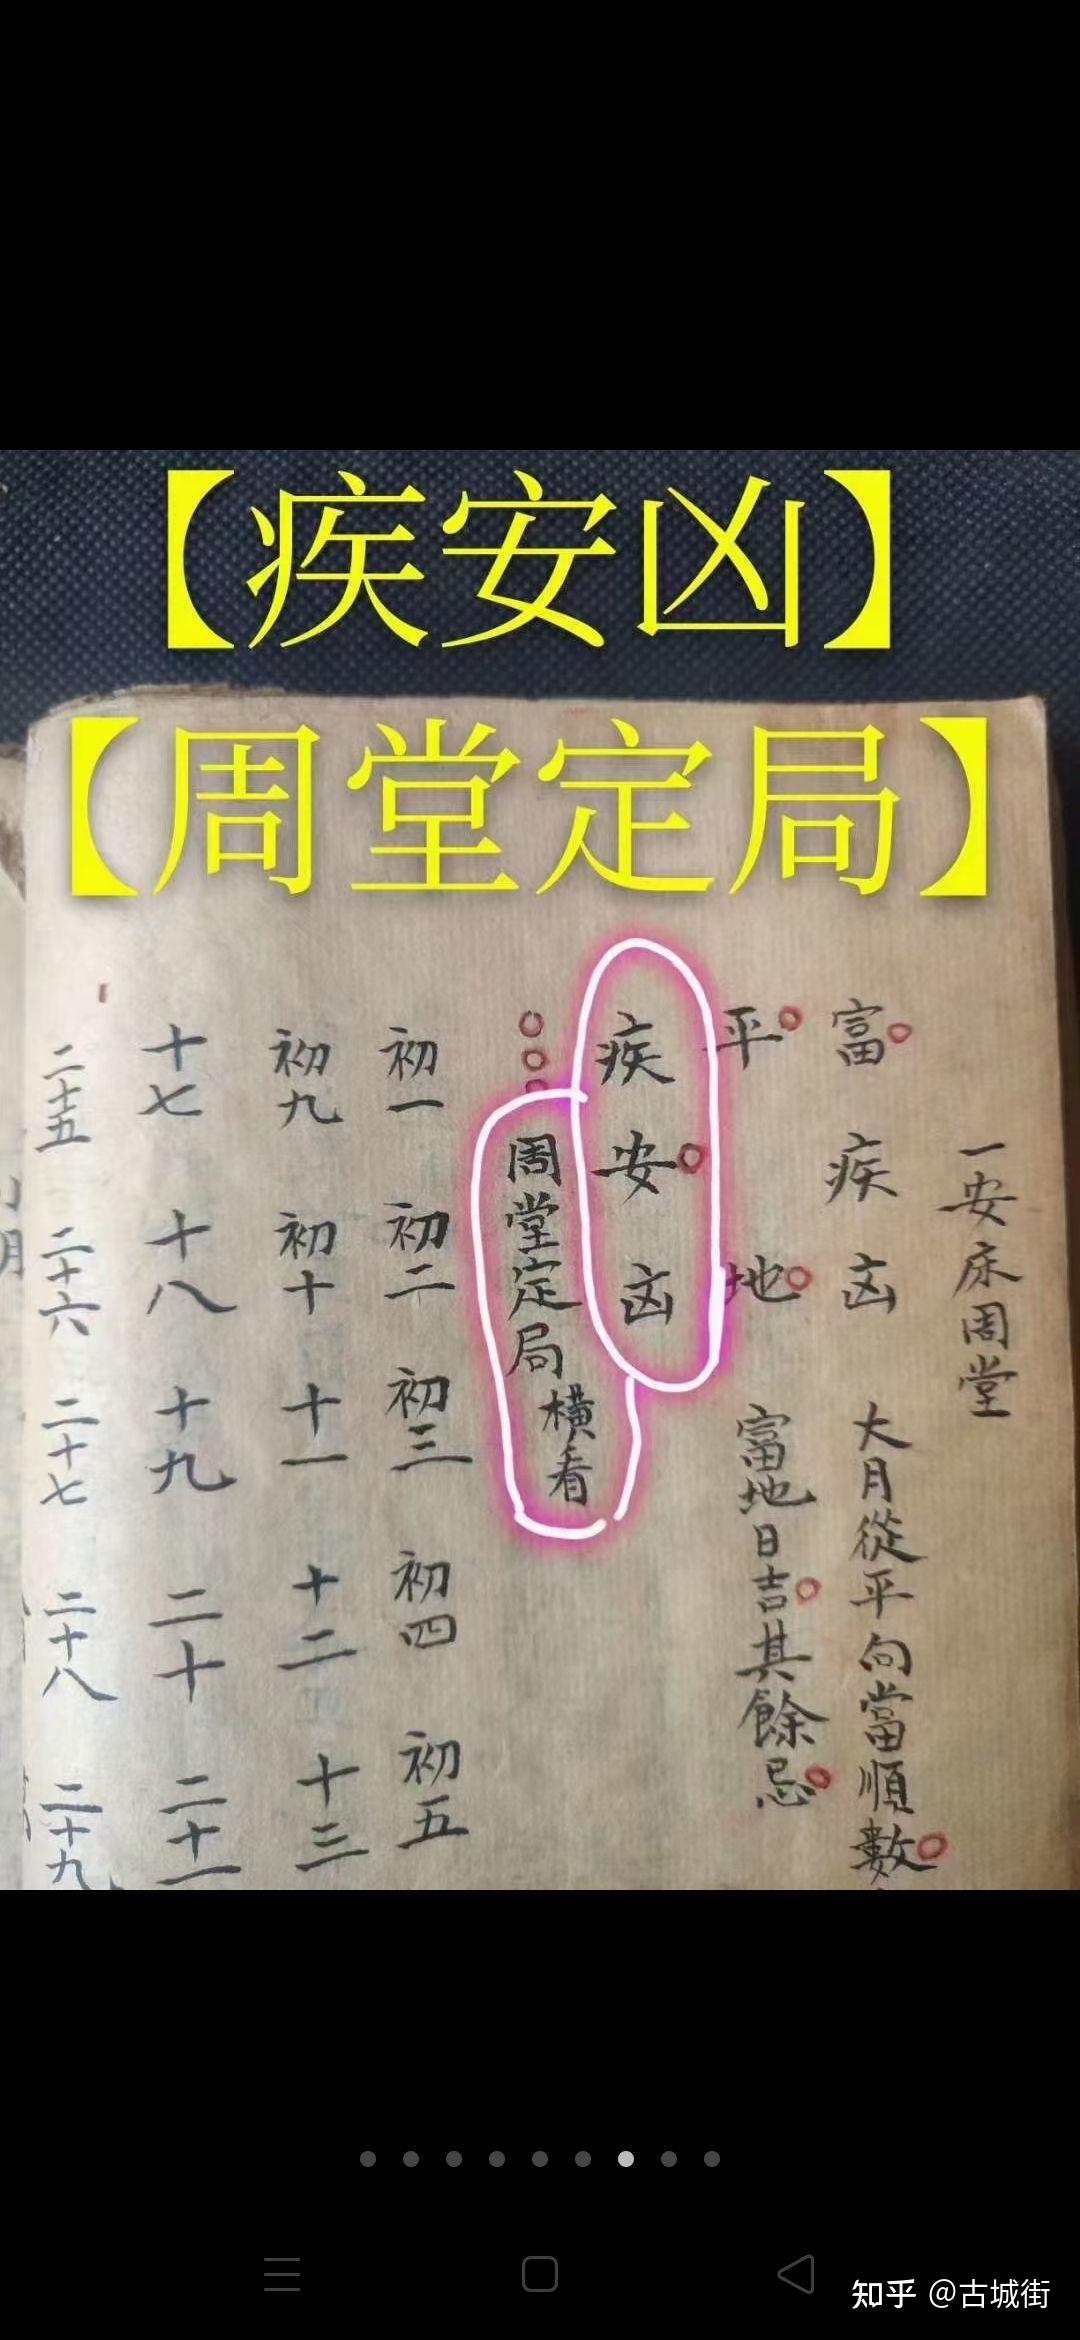 【疾安凶】
【周堂定局】
一安床周堂
富疾凶 大月從平向富順數
平 地 富地日吉其餘忌
疾安凶
周堂定局 橫看
初一 初二 初三 初四 初五
初九 初十 十一 十二 十三
十七 十八 十九 二十 二十一
二十五 二十六 二十七 二十八 二十九
知乎 @古城街